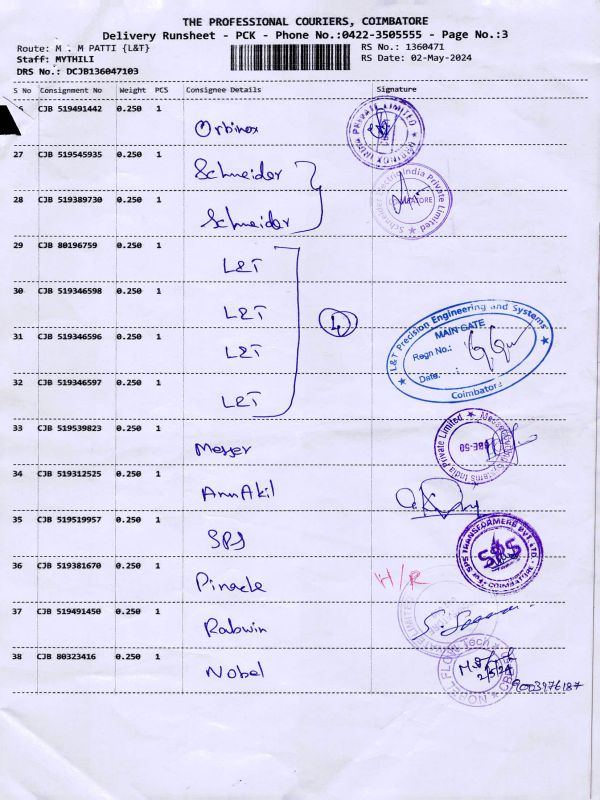 THE PROFESSIONAL COURIERS, COIMBATORE
Delivery Runsheet - PCK - Phone No.:0422-3505555 - Page No.:3
Route: M . M PATTI {L&T}
RS No.: 1360471
Staff: MYTHILI
RS Date: 02-May-2024
DRS No.: DCJB136047103
S No Consignment No Weight PCS Consignee Details Signature
CJB 519491442 0.250 1 Orbinox
27 CJB 519545935 0.250 1 Schneider
28 CJB 519389730 0.250 1 Schneider
29 CJB 80196759 0.250 1 L&T
30 CJB 519346598 0.250 1 L&T
4
31 CJB 519346596 0.250 1 L&T
L&T Precision Engineering and Systems
MAIN GATE
Regn No.:
Date. :
Coimbatore
32 CJB 519346597 0.250 1 L&T
33 CJB 519539823 0.250 1 Messer
34 CJB 519312525 0.250 1 AnnAkil
35 CJB 519519957 0.250 1 SPS
SPS TRANSFORMERS PVT LTD
SPS
36 CJB 519381670 0.250 1 Pinacle H/R
37 CJB 519491450 0.250 1 Rabwin
38 CJB 80323416 0.250 1 Nobel
NOBEL FLOW Tech
2/5/24